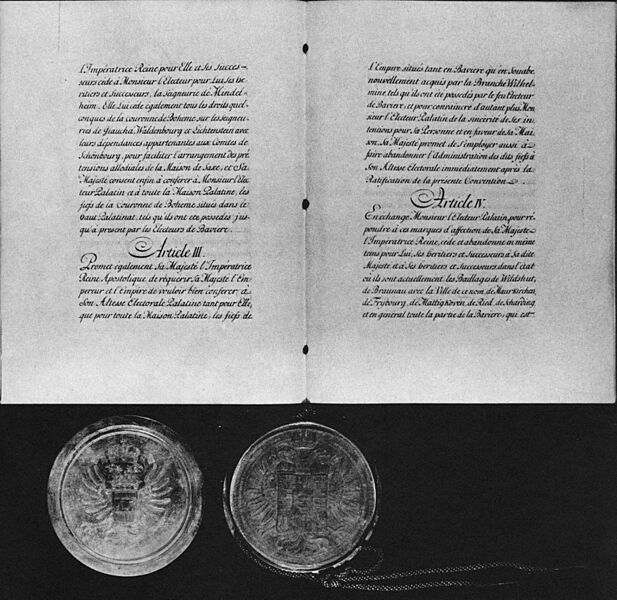 l'Impératrice Reine pour Elle et Ses Succes-
seurs cede à Monsieur l'Electeur pour Lui, Ses he-
ritiers et Successeurs, la Seigneurie de Mindel-
heim. Elle Lui cede également tous les droits quel-
conques de la couronne de Boheme, sur les seigneu-
ries de Glaucha, Waldenbourg et Lichtenstein avec
leurs dépendances appartenantes aux Comtes de
Schönbourg, pour faciliter l'arrangement des pré-
tensions allodiales de la Maison de Saxe, et Sa
Majesté consent enfin à conférer à Monsieur l'Elec-
teur Palatin et à toute la Maison Palatine, les
fiefs de la Couronne de Boheme situés dans le
haut Palatinat, tels qu'ils ont été possedés jus-
qu'à present par les Electeurs de Baviere.
Article III.
Promet également Sa Majesté l'Impératrice
Reine Apostolique de réquerir Sa Majesté l'Em-
pereur et l'Empire de vouloir bien conferer à
Son Altesse Electorale Palatine tant pour Elle,
que pour toute la Maison Palatine, les fiefs de
l'Empire situés tant en Baviere qu'en Souabe
nouvellement acquis par la Branche Wilhel-
mine, tels qu'ils ont été possedés par le feu Electeur
de Baviere; et pour convaincre d'autant plus Mon-
sieur l'Electeur Palatin de la sincerité de Ses in-
tentions pour Sa Personne et en faveur de Sa Mai-
son, Sa Majesté promet de s'employer aussi à
faire abandonner l'Administration des dits fiefs à
Son Altesse Electorale immediatement après la
Ratification de la présente Convention.
Article IV.
En échange Monsieur l'Electeur Palatin, pour ré-
pondre à ces marques d'affection de Sa Majesté
l'Impératrice Reine, cede et abandonne en même
tems pour Lui, Ses héritiers et Successeurs à Sa dite
Majesté et à Ses héritiers et Successeurs dans l'état
où ils sont actuellement, les Bailliages de Wildshut,
de Braunau avec la Ville de ce nom, de Maurkirchen,
de Frybourg, de Mattigkoven, de Ried, de Scharding
et en general toute la partie de la Baviere, qui est